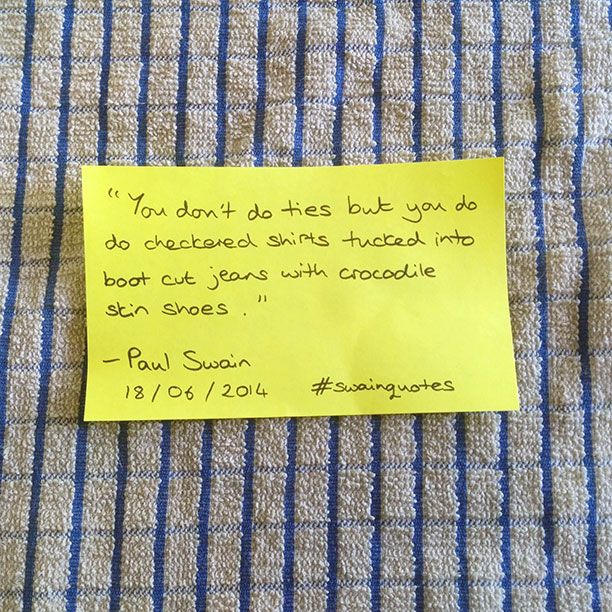 "You don't do ties but you do
do checkered shirts tucked into
boot cut jeans with crocodile
skin shoes."
- Paul Swain
18/06/2014 #swainquotes